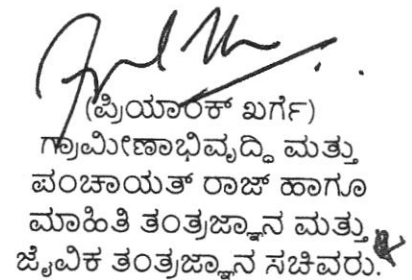 (ಪ್ರಿಯಾಂಕ್ ಖರ್ಗೆ)
ಗ್ರಾಮೀಣಾಭಿವೃದ್ಧಿ ಮತ್ತು
ಪಂಚಾಯತ್ ರಾಜ್ ಹಾಗೂ
ಮಾಹಿತಿ ತಂತ್ರಜ್ಞಾನ ಮತ್ತು
ಜೈವಿಕ ತಂತ್ರಜ್ಞಾನ ಸಚಿವರು.